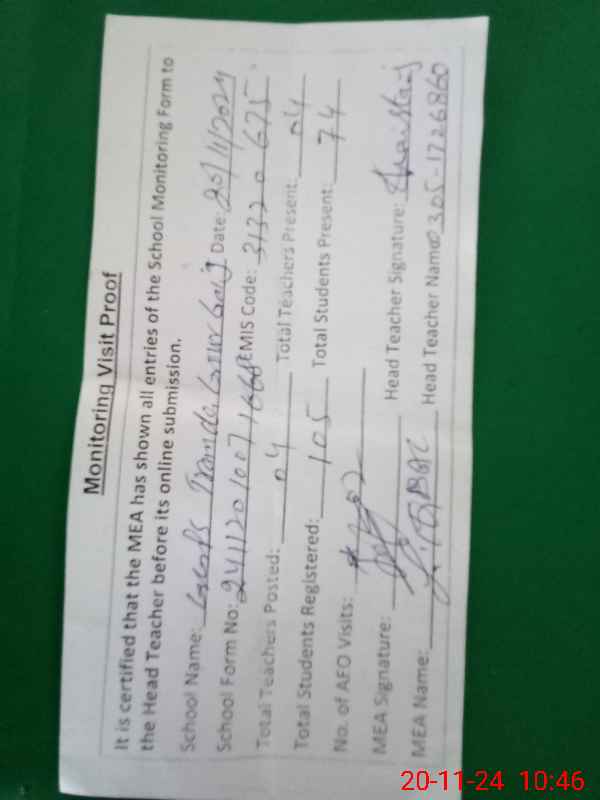 Monitoring Visit Proof
It is certified that the MEA has shown all entries of the School Monitoring Form to
the Head Teacher before its online submission.
School Name: Date: 20/11/2024
School Form No: 241120100716681 EMIS Code: 31320675
Total Teachers Posted: 04 Total Teachers Present: 04
Total Students Registered: 105 Total Students Present: 74
No. of AFO Visits:
MEA Signature: Head Teacher Signature:
MEA Name: Head Teacher Name: 0305-1726860
20-11-24 10:46